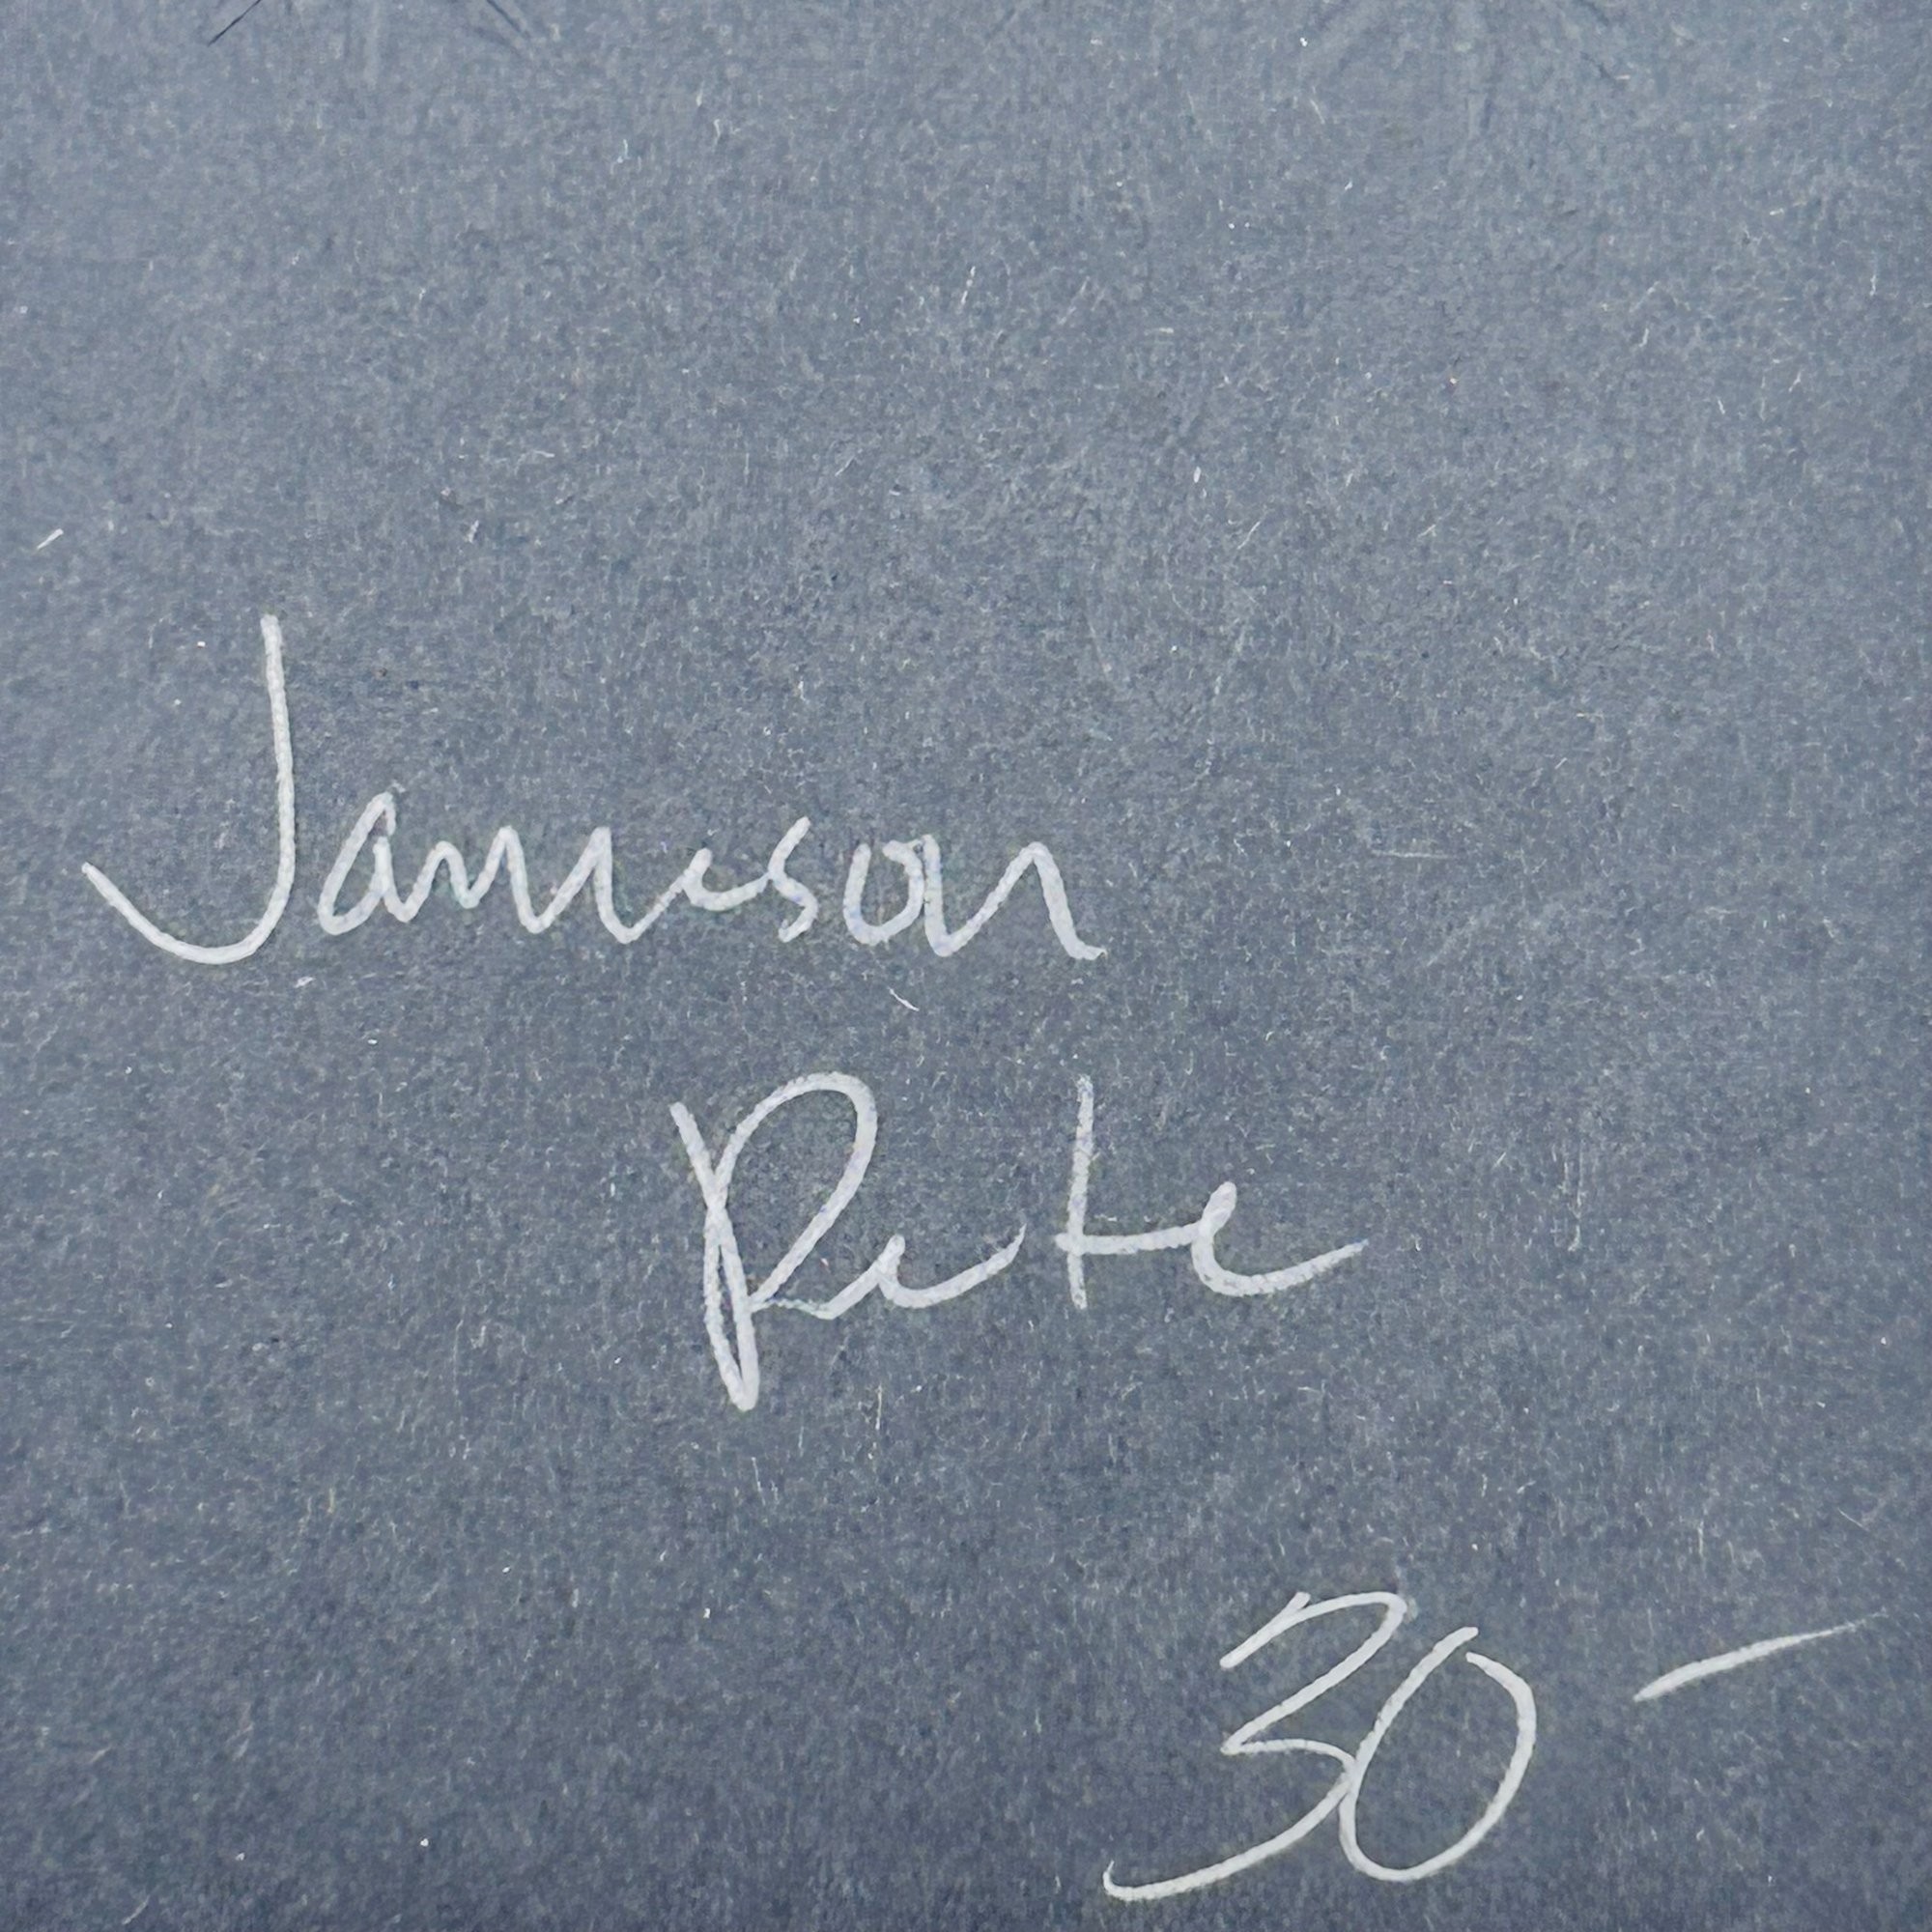 Jameson
Pete
30-